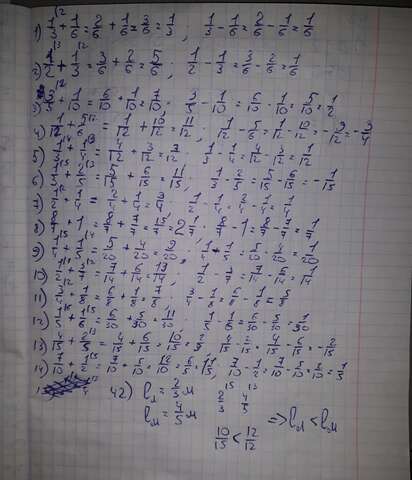 1) 1/3 + 1/6 = 2/6 + 1/6 = 3/6 = 1/3 ; 1/3 - 1/6 = 2/6 - 1/6 = 1/6
2) 1/2 + 1/3 = 3/6 + 2/6 = 5/6 ; 1/2 - 1/3 = 3/6 - 2/6 = 1/6
3) 3/5 + 1/10 = 6/10 + 1/10 = 7/10 ; 3/5 - 1/10 = 6/10 - 1/10 = 5/10 = 1/2
4) 1/12 + 5/6 = 1/12 + 10/12 = 11/12 ; 1/12 - 5/6 = 1/12 - 10/12 = - 9/12 = - 3/4
5) 1/3 + 1/4 = 4/12 + 3/12 = 7/12 ; 1/3 - 1/4 = 4/12 - 3/12 = 1/12
6) 1/3 + 2/5 = 5/15 + 6/15 = 11/15 ; 1/3 - 2/5 = 5/15 - 6/15 = - 1/15
7) 1/2 + 1/4 = 2/4 + 1/4 = 3/4 ; 1/2 - 1/4 = 2/4 - 1/4 = 1/4
8) 8/7 + 1 = 8/7 + 7/7 = 15/7 = 2 1/7 ; 8/7 - 1 = 8/7 - 7/7 = 1/7
9) 1/4 + 1/5 = 5/20 + 4/20 = 9/20 ; 1/4 - 1/5 = 5/20 - 4/20 = 1/20
10) 1/2 + 3/7 = 7/14 + 6/14 = 13/14 ; 1/2 - 3/7 = 7/14 - 6/14 = 1/14
11) 3/4 + 1/8 = 6/8 + 1/8 = 7/8 ; 3/4 - 1/8 = 6/8 - 1/8 = 5/8
12) 1/5 + 1/6 = 6/30 + 5/30 = 11/30 ; 1/5 - 1/6 = 6/30 - 5/30 = 1/30
13) 4/15 + 2/5 = 4/15 + 6/15 = 10/15 = 2/3 ; 4/15 - 2/5 = 4/15 - 6/15 = - 2/15
14) 7/10 + 1/2 = 7/10 + 5/10 = 12/10 = 6/5 ; 7/10 - 1/2 = 7/10 - 5/10 = 2/10 = 1/5
42) l л = 2/3 м
l м = 4/5 м
2/3 4/5
10/15 < 12/12 => l л < l м